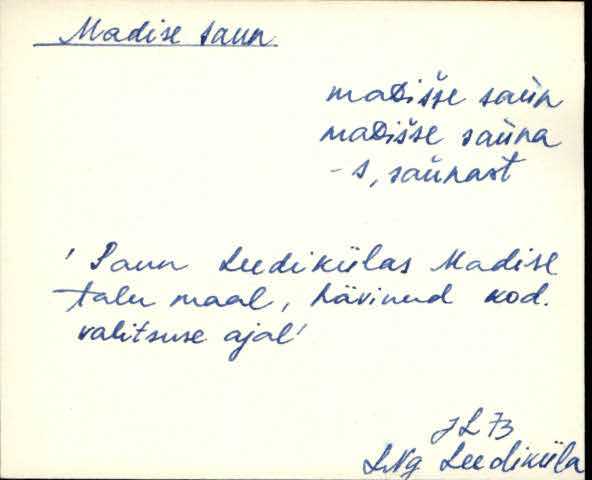 Madise saun
maDišse saün
maDišse saüna
-s, saünast
' Saun Leedikülas Madise
talu maal, hävinud kod.
valitsuse ajal'
JL 73
LNg Leediküla